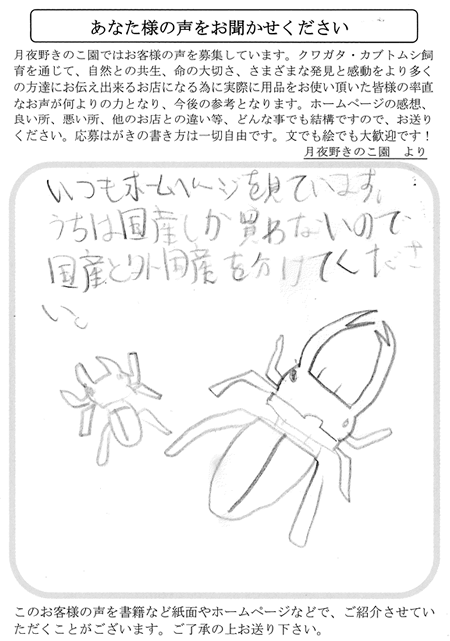 あなた様の声をお聞かせください
月夜野きのこ園ではお客様の声を募集しています。クワガタ・カブトムシ飼
育を通じて、自然との共生、命の大切さ、さまざまな発見と感動をより多く
の方達にお伝え出来るお店になる為に実際に用品をお使い頂いた皆様の率直
なお声が何よりの力となり、今後の参考となります。ホームページの感想、
良い所、悪い所、他のお店との違い等、どんな事でも結構ですので、お送り
ください。応募はがきの書き方は一切自由です。文でも絵でも大歓迎です！
月夜野きのこ園　より
いつもホームページを見ています。
うちは国産しか買わないので
国産と外国産を分けてくださ
い。
このお客様の声を書籍など紙面やホームページなどで、ご紹介させてい
ただくことがございます。ご了承の上お送り下さい。